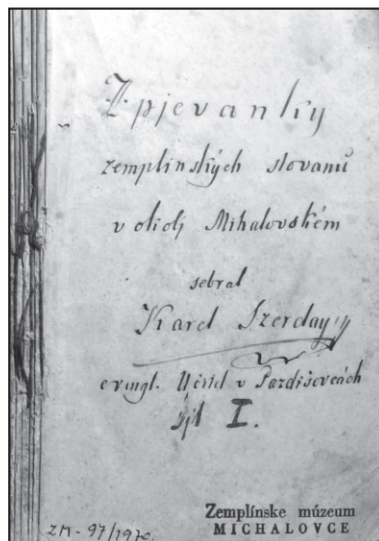 Zpjevanky
zemplinských slovanů
v okolj Mihalovském
sebral
Karel Szerday
evingl. Učitel v Pazdišovcách
Djl I.
Zemplínske múzeum
MICHALOVCE
ZM - 97/1970.